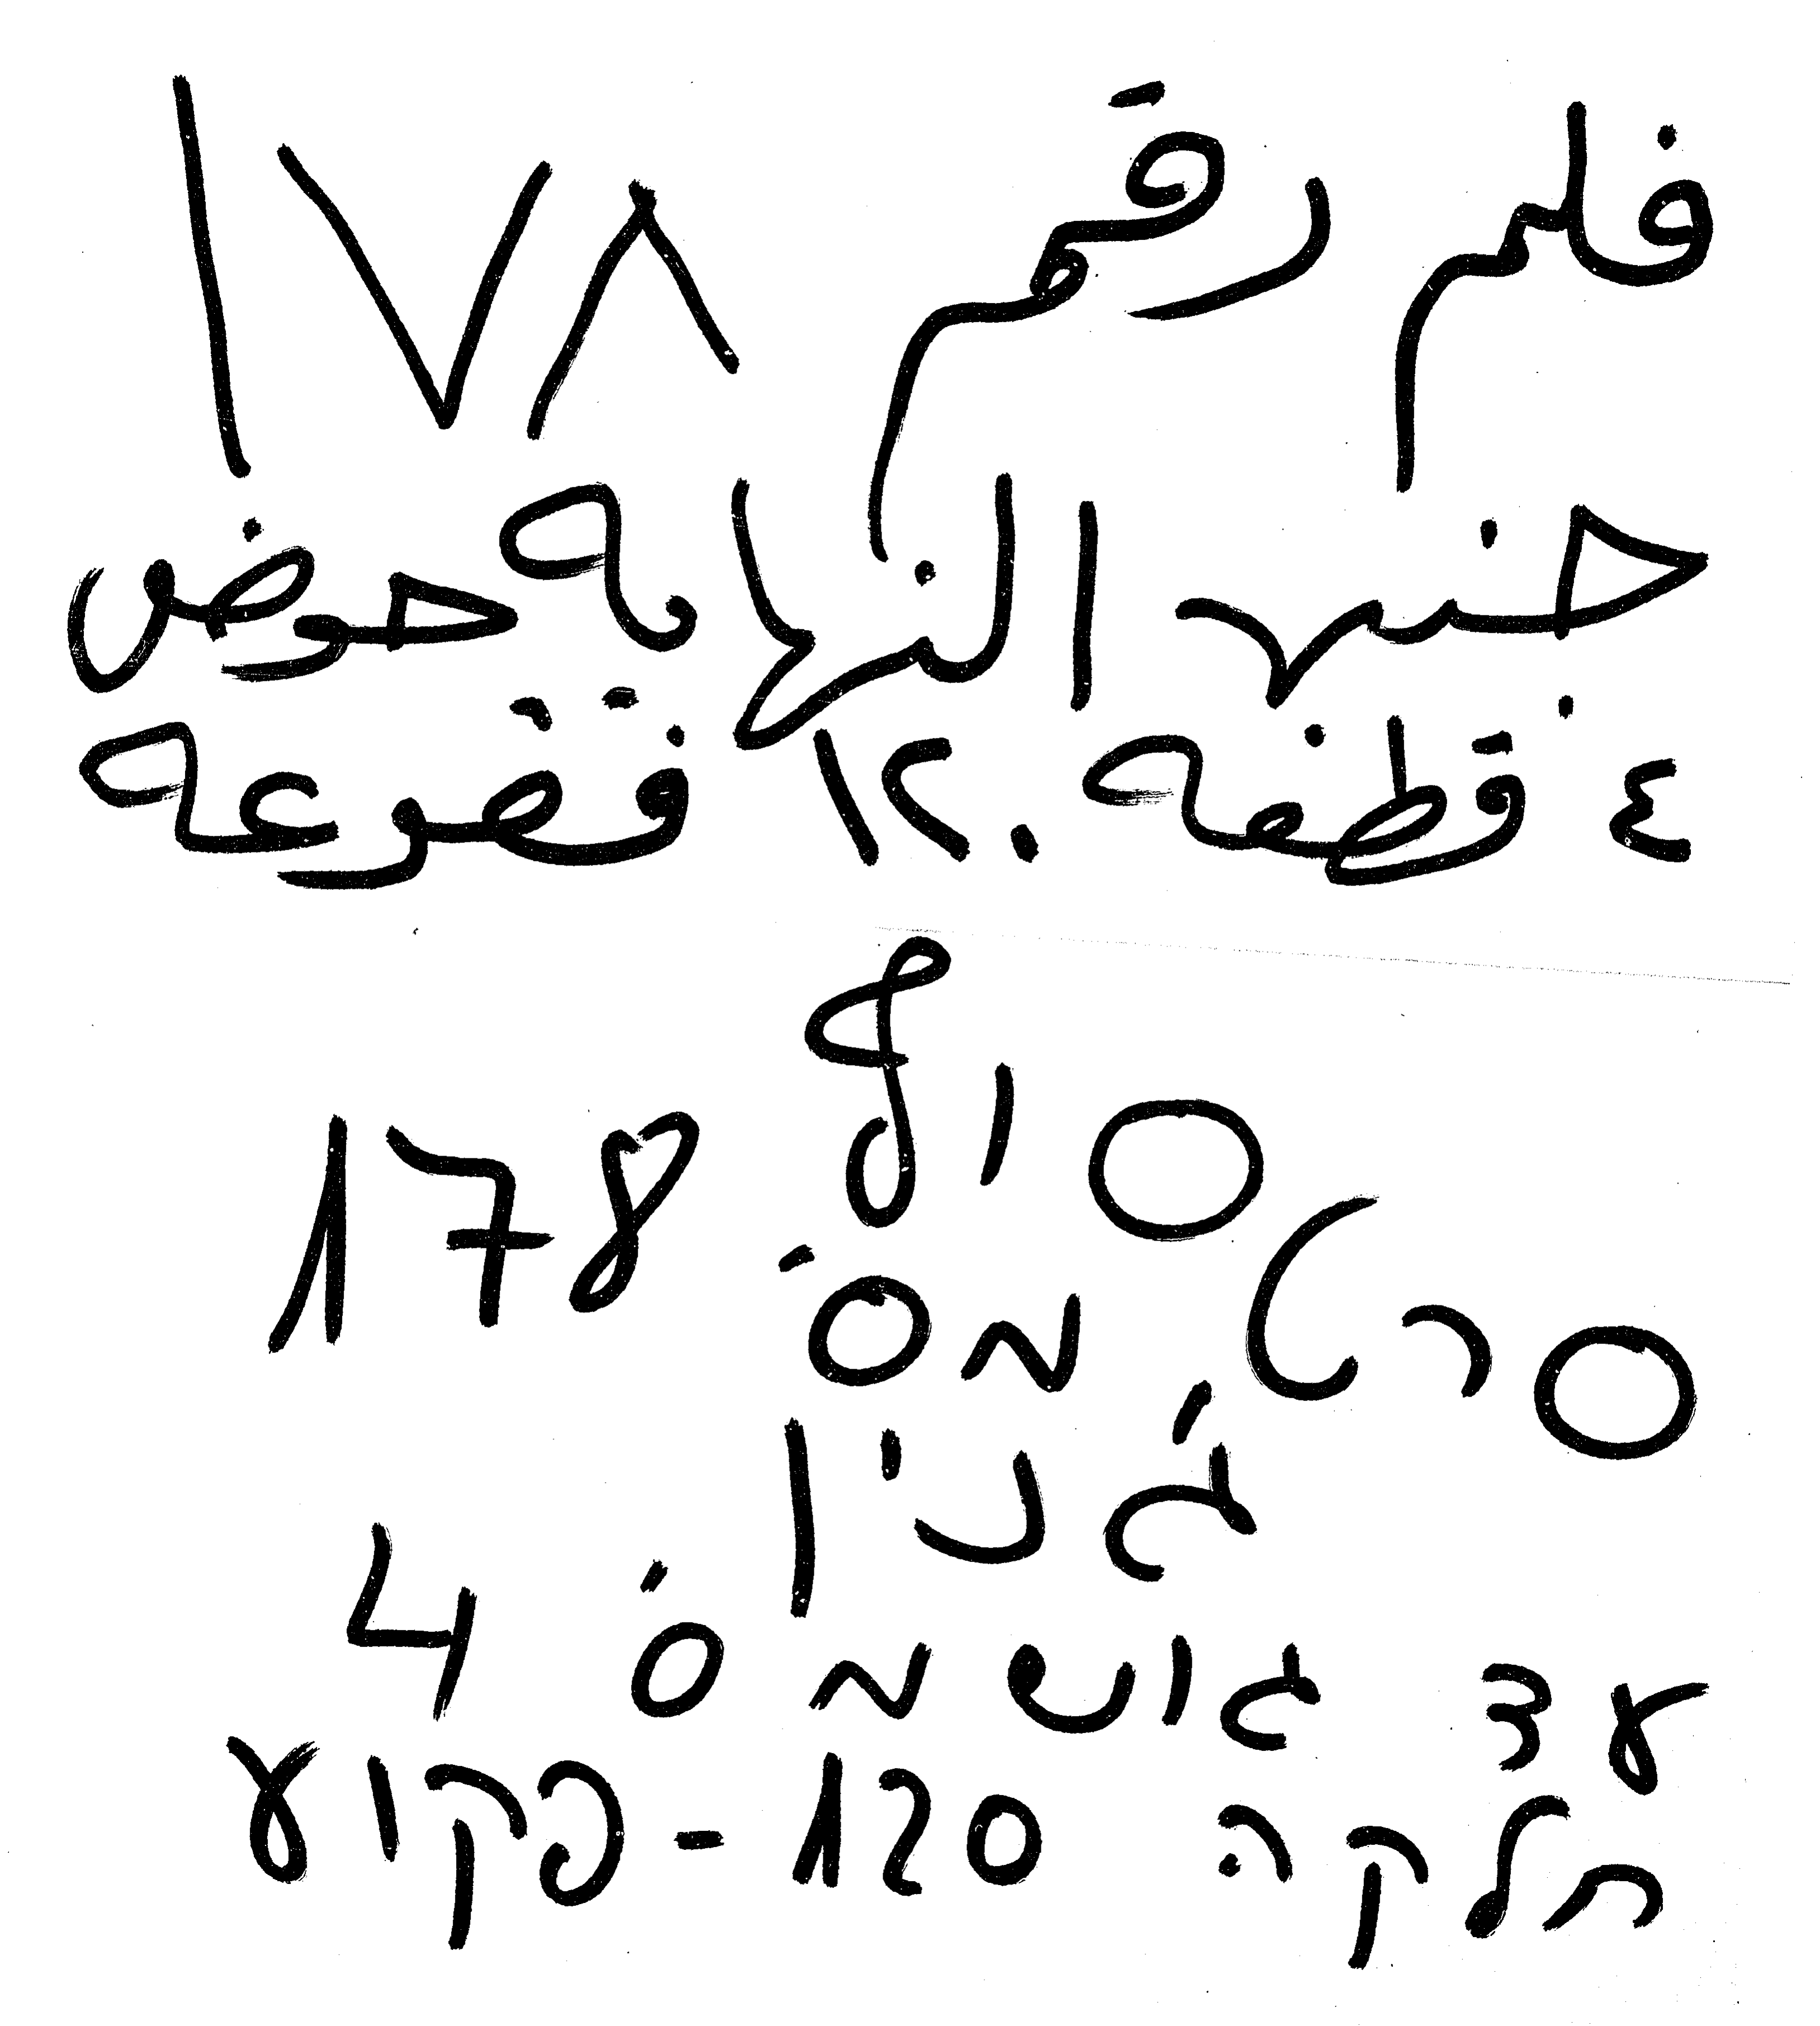 فلم رقم ١٧٨
جنين النهاية حوض
٤ قطعة ١٢٠ فقوعة
סוף
סרט מס' 178
ג'נין
עד גוש מס' 4
חלקה 120 - פקוע